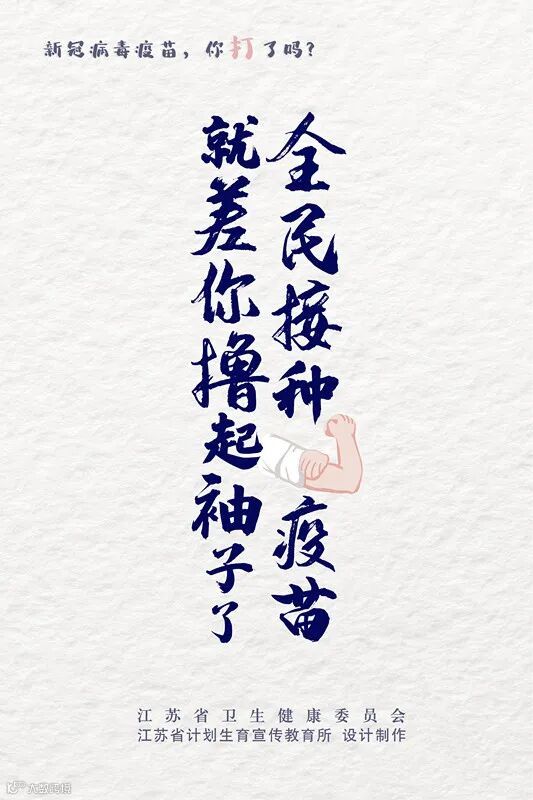 新冠病毒疫苗，你打了吗？
全民接种疫苗
就差你撸起袖子了
江苏省卫生健康委员会
江苏省计划生育宣传教育所 设计制作
大数跨境